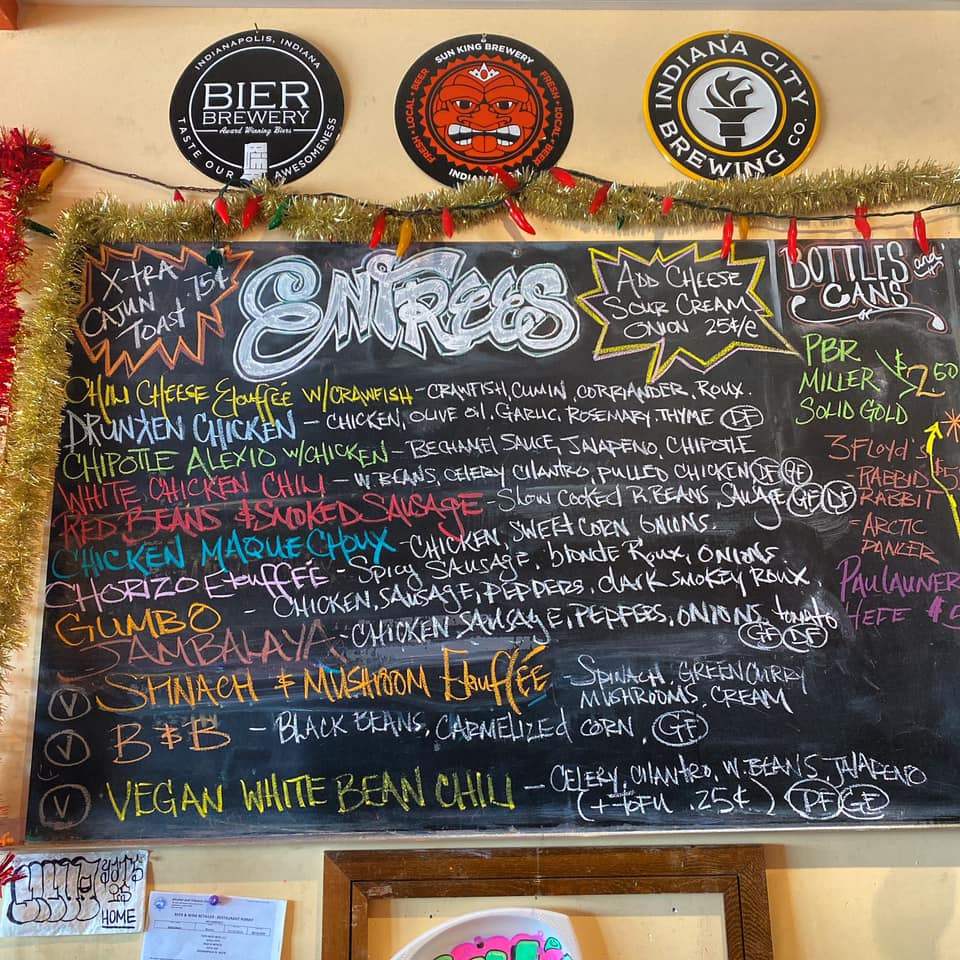 INDIANAPOLIS, INDIANA
BIER
BREWERY
Award Winning Biers
TASTE OUR AWESOMENESS
SUN KING BREWERY
FRESH • LOCAL • BEER
FRESH • LOCAL • BEER
INDIANA CITY
BREWING CO.
X-TRA
CAJUN
TOAST
75¢
ENTREES
ADD CHEESE
SOUR CREAM
ONION 25¢/e
BOTTLES and
CANS
CHILI CHEESE Etouffée W/CRAWFISH - CRAWFISH, CUMIN, CORRIANDER, ROUX.
DRUNKEN CHICKEN - CHICKEN, OLIVE OIL, GARLIC, ROSEMARY, THYME DF
CHIPOTLE ALEXIO W/CHICKEN - BECHAMEL SAUCE, JALAPENO, CHIPOTLE
WHITE CHICKEN CHILI - W. BEANS, CELERY CILANTRO, PULLED CHICKEN DF GF
RED BEANS & SMOKED SAUSAGE - SLOW COOKED R. BEANS, SAUSAGE GF DF
CHICKEN MAQUE CHOUX - CHICKEN, SWEET CORN ONIONS.
CHORIZO Etouffée - Spicy SAUSAGE, blonde Roux, ONIONS
GUMBO - CHICKEN, SAUSAGE, PEPPERS, dark smokey ROUX.
JAMBALAYA - CHICKEN SAUSAGE, PEPPERS, ONIONS, tomato
GF DF
V SPINACH & MUSHROOM Etouffée - SPINACH, GREEN CURRY
MUSHROOMS, CREAM
V B & B - BLACK BEANS, CARMELIZED CORN. GF
V VEGAN WHITE BEAN CHILI - CELERY, CILANTRO, W. BEANS, JALAPENO
(+ TOFU .25¢) DF GF
PBR
MILLER
SOLID GOLD
$2.50
3 FLOYD'S
- RABBID
RABBIT
- ARCTIC
PANZER
PAULAUNER
HEFE $5
HOME
BEER & WINE RETAILER - RESTAURANT PERMIT